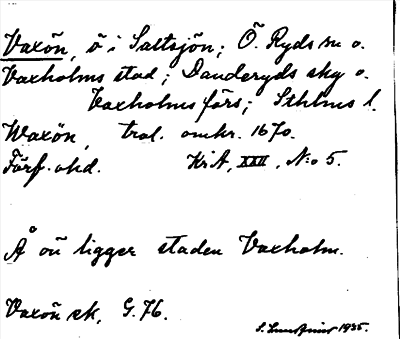 Vaxön, ö i Saltsjön; Ö. Ryds sn o.
Vaxholms stad; Danderyds skg o.
Vaxholms förs; Sthlms l.
Waxön, trol. omkr. 1670.
Förf. okd. KrA, XXII, No 5.
Å ön ligger staden Vaxholm.
Vaxön ek. G. 76.
1935.